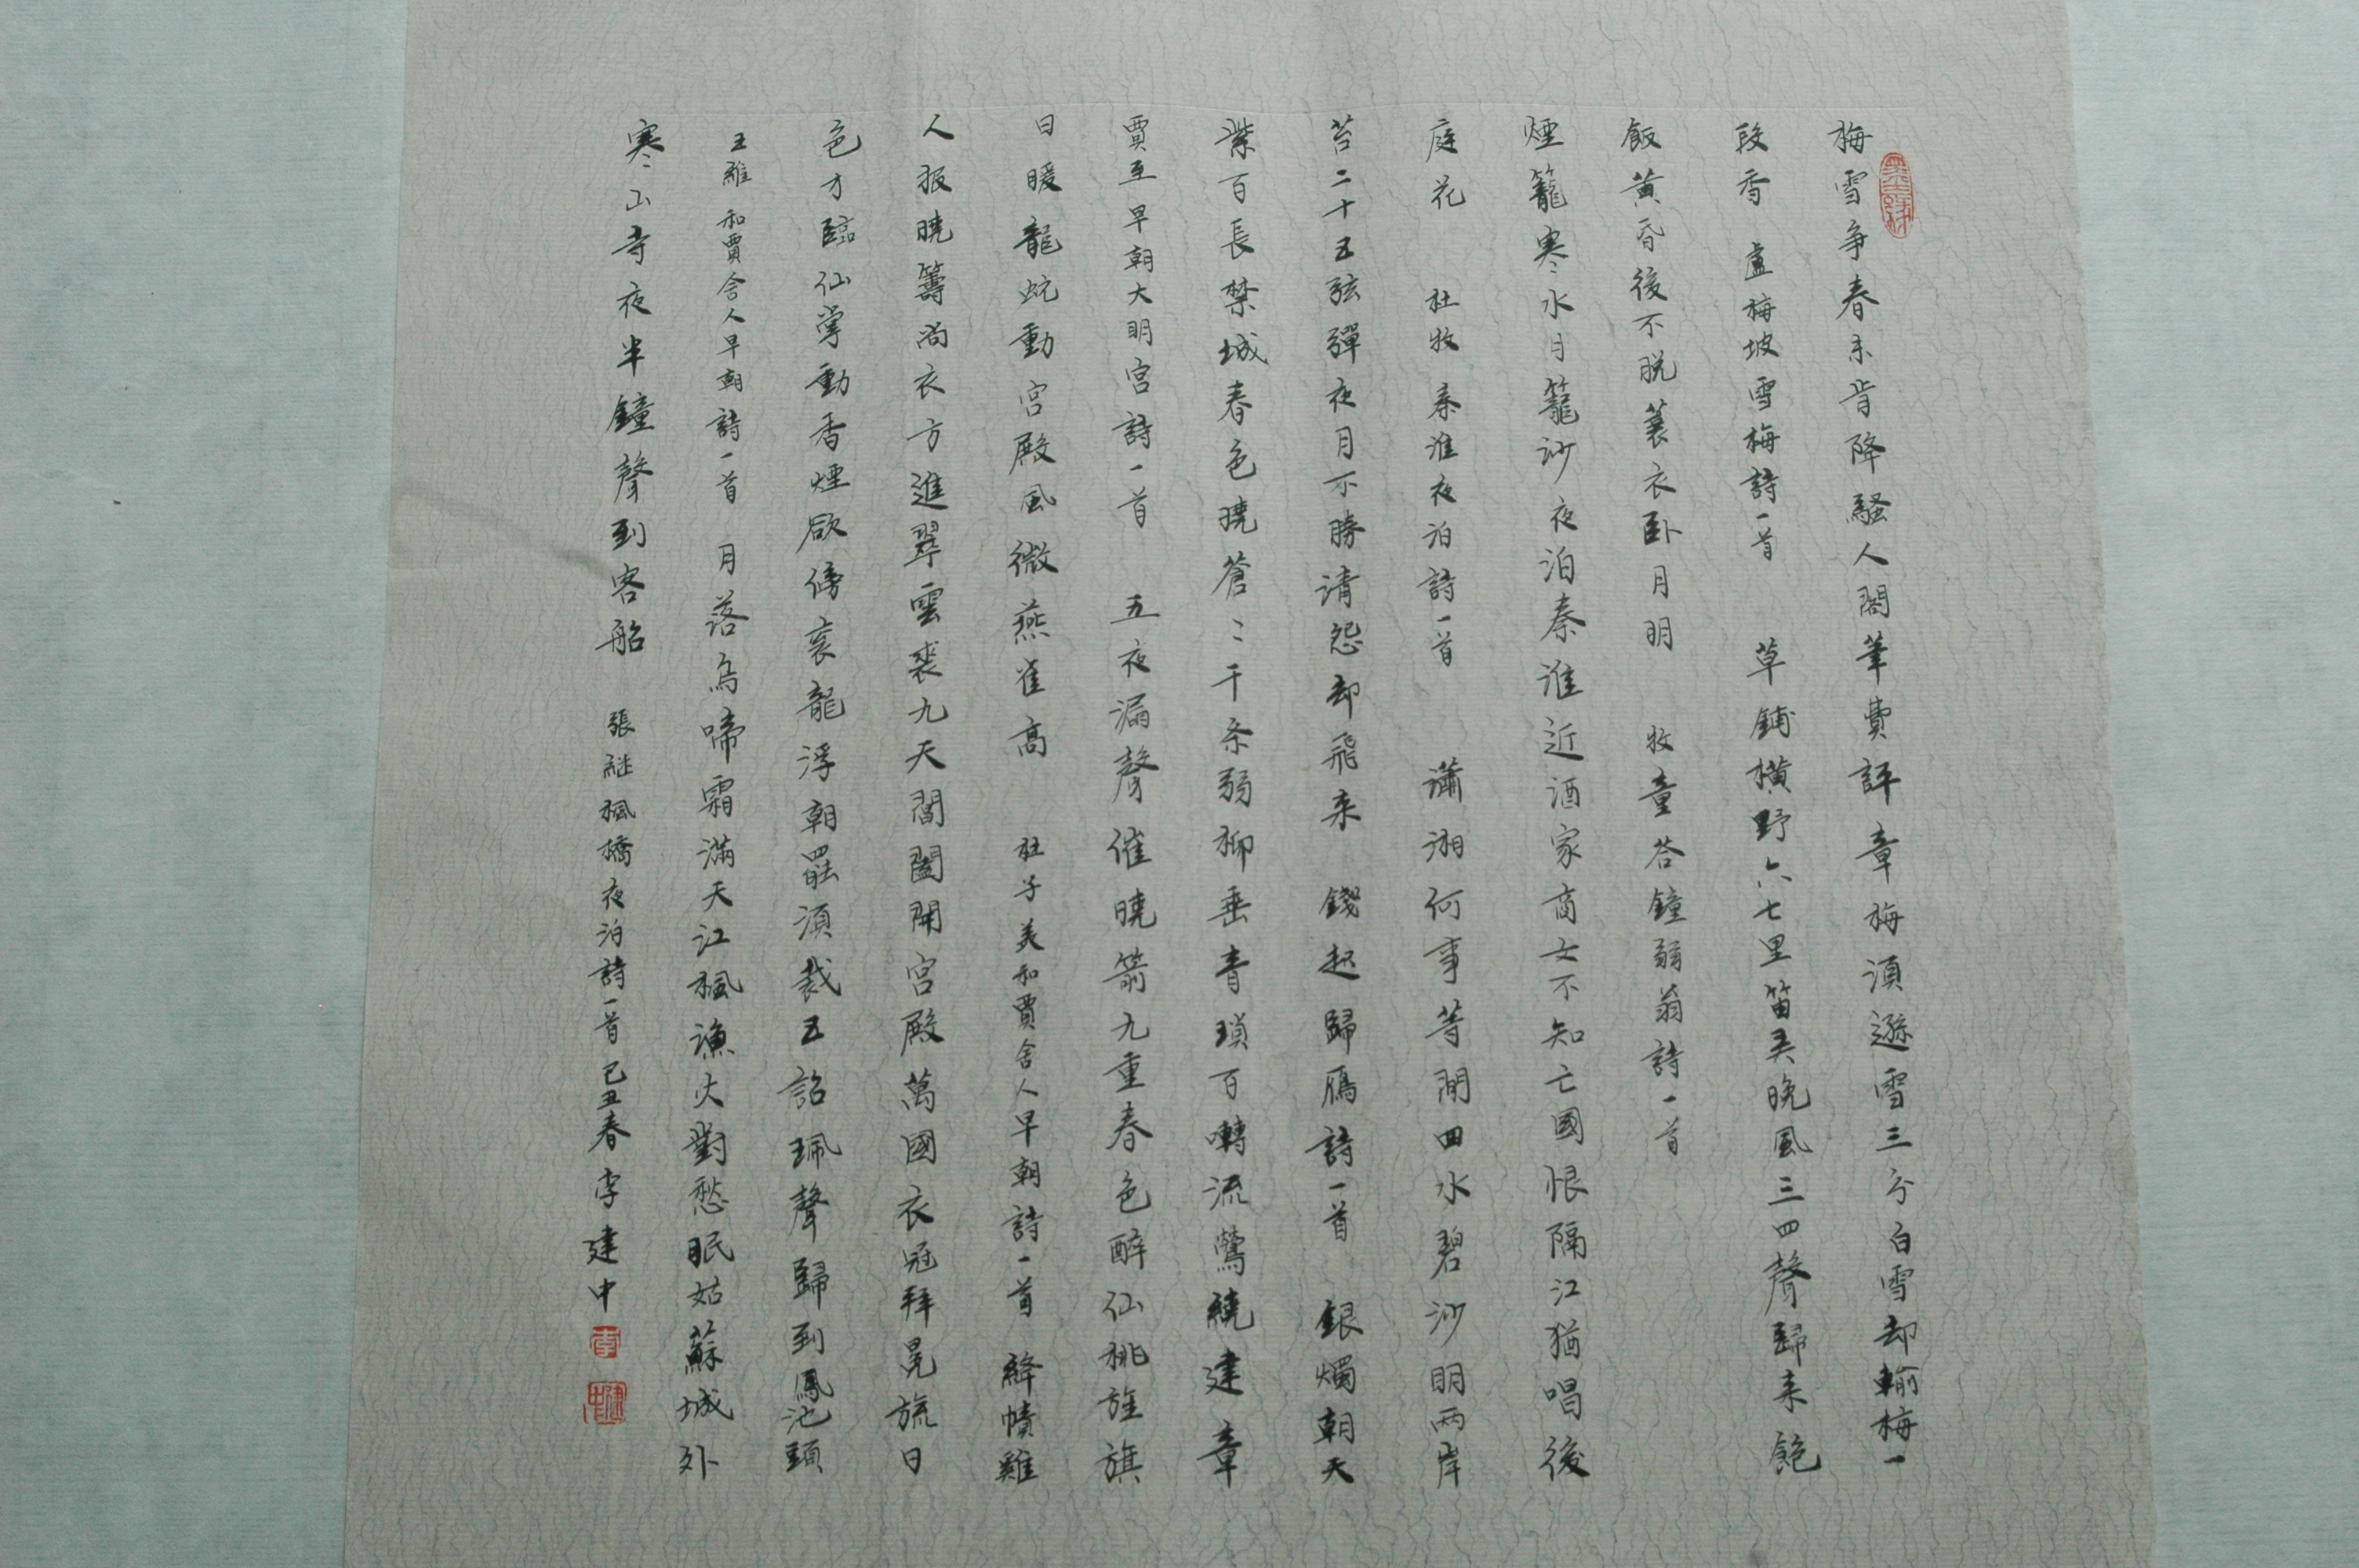 梅雪争春未肯降騷人閣筆費評章梅湏遜雪三分白雪却輸梅一
段香 盧梅坡雪梅詩一首 草鋪橫野六七里笛弄晚風三四聲歸来飽
飯黄昏後不脱蓑衣卧月明 牧童荅鐘翁翁詩一首
煙籠寒水月籠沙夜泊秦淮近酒家商女不知亡國恨隔江猶唱後
庭花 杜牧秦淮夜泊詩一首 瀟湘何事等閒回水碧沙明兩岸
苔二十五弦彈夜月不勝清怨却飛来 錢起歸鴈詩一首 銀燭朝天
紫百長禁城春色曉蒼〻千条弱柳垂青瑣百囀流鶯繞建章
賈至早朝大明宫詩一首 五夜漏聲催曉箭九重春色醉仙桃旌旗
日暖龍蛇動宫殿風微燕雀高 杜子美和賈舍人早朝詩一首 絳幘雞
人报曉籌尚衣方進翠雲裘九天閶闔開宫殿萬國衣冠拜冕旒日
色才臨仙掌動香煙欲傍衮龍浮朝罷湏裁五詔珮聲歸到鳳池頭
王維和賈舍人早朝詩一首 月落烏啼霜滿天江楓漁火對愁眠姑蘇城外
寒山寺夜半鐘聲到客船 張継楓橋夜泊詩一首己丑春李建中
李
建中